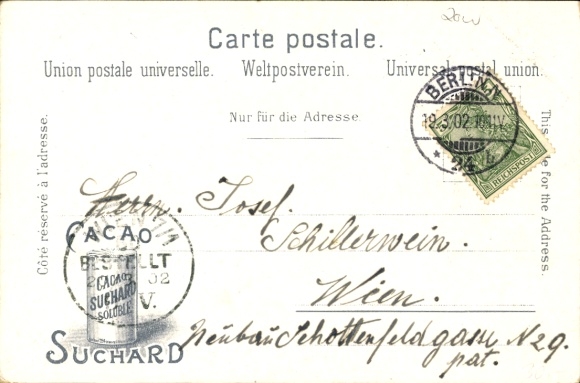 20w
Carte postale.
Union postale universelle. Weltpostverein. Universal postal union.
BERLIN.N.
19.3.02.10-11V.
* 24 b
REICHSPOST
Nur für die Adresse.
Côté réservé à l'adresse.
This side for the Address.
Herrn. Josef.
Schillerwein.
Wien.
Neubau Schottenfeldgasse N 29.
pat.
CACAO
BESTELLT
02
V.
CACAO
SUCHARD
SOLUBLE
SUCHARD